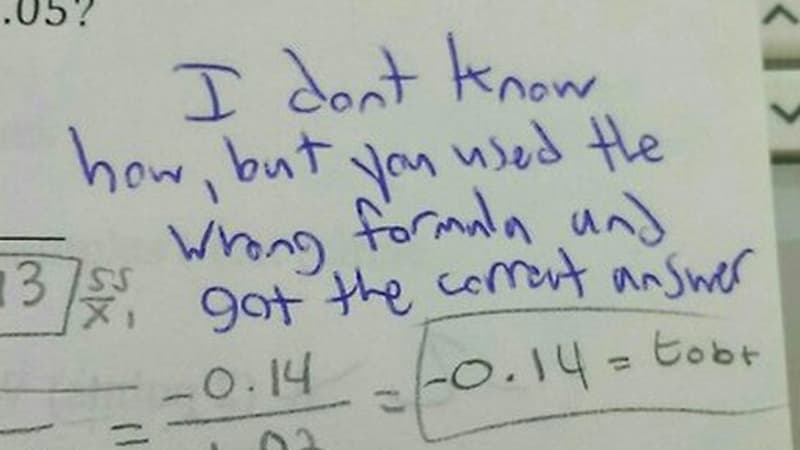 .05?
I dont know
how, but you used the
wrong formula and
got the correct answer
13 SS
X1
-0.14
= = -0.14 = tobt